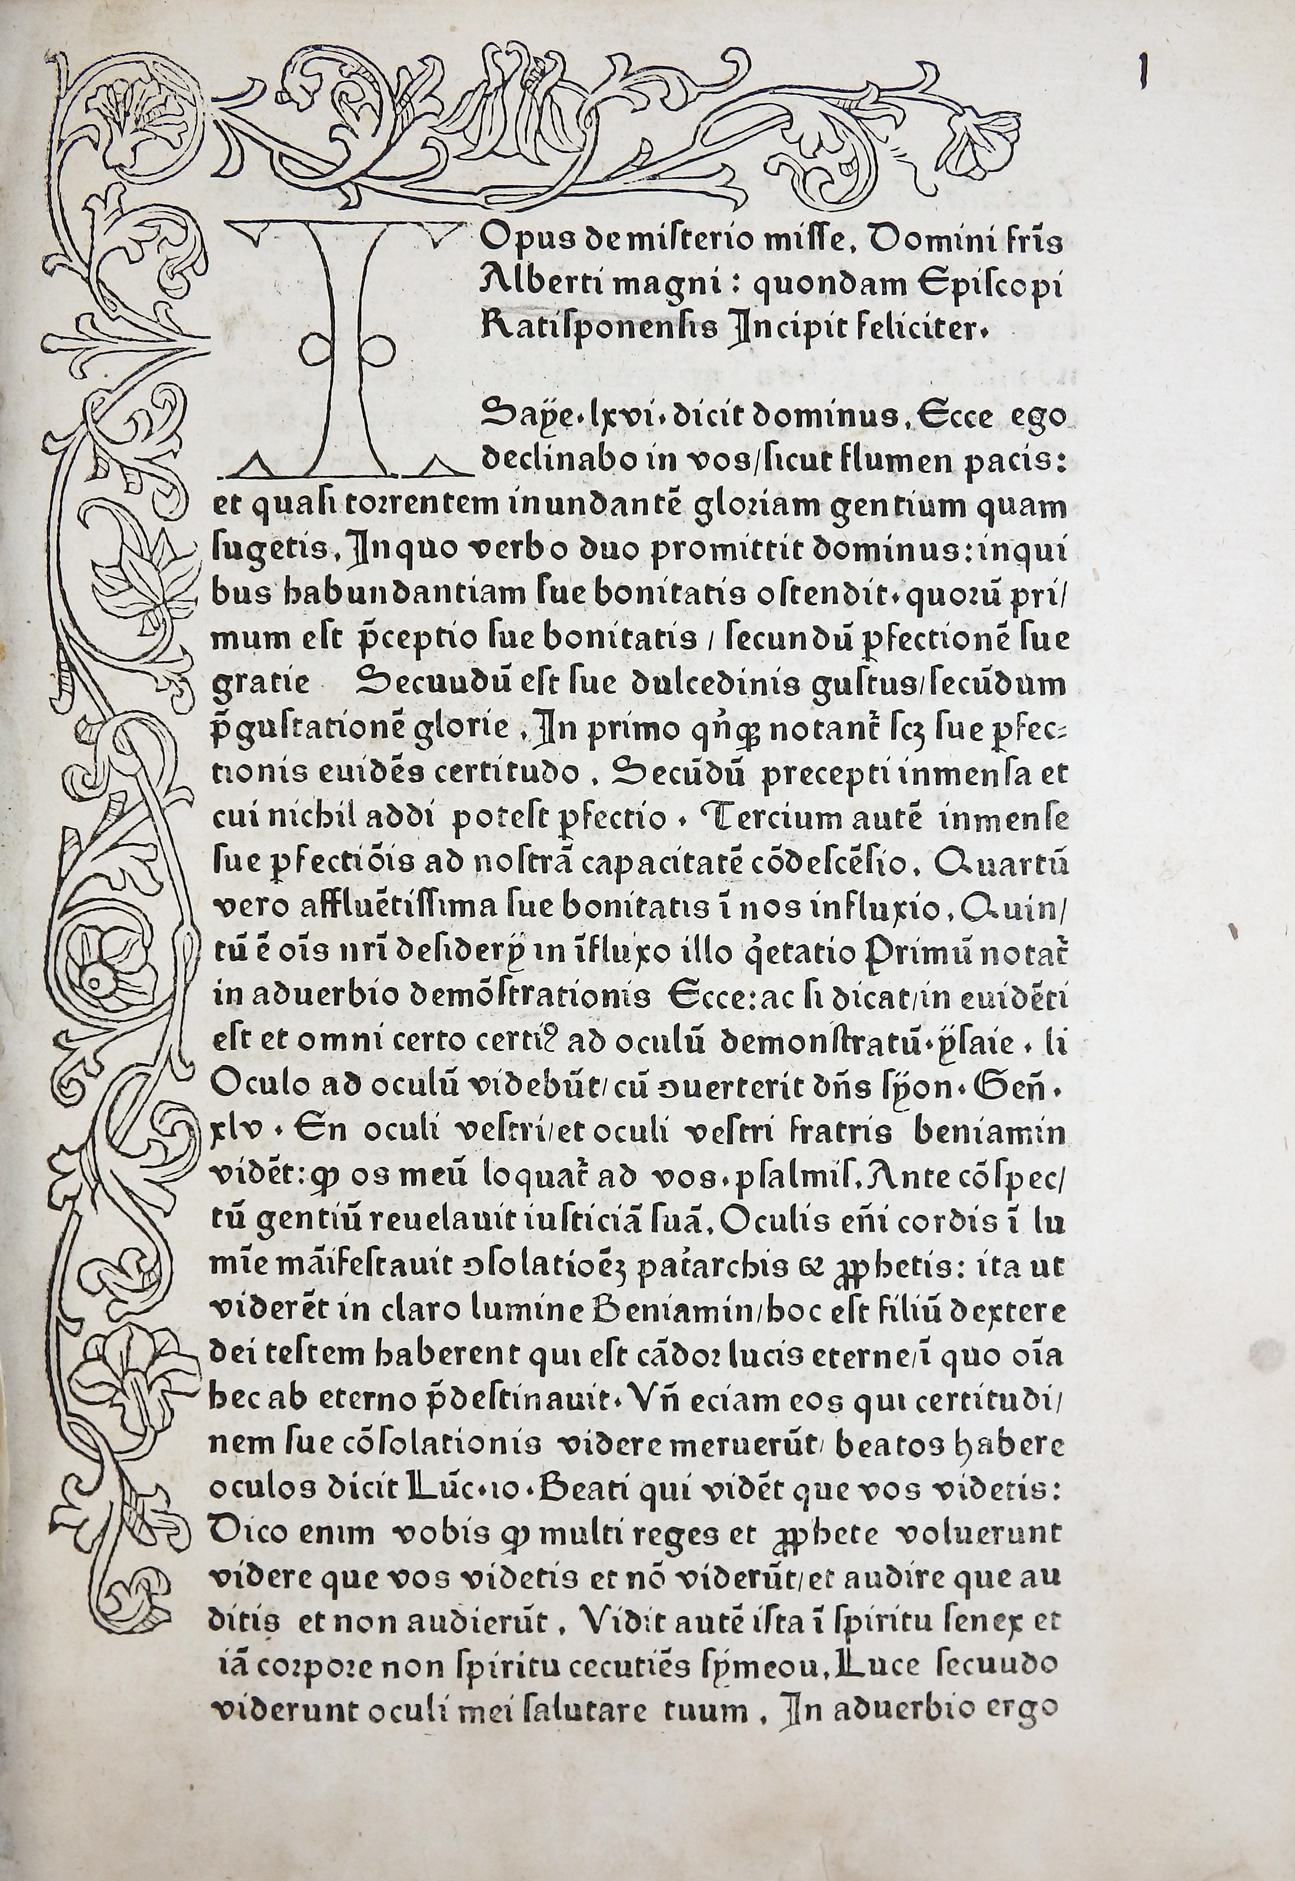 1
Opus de miſterio miſſe. Domini fr̄is
Alberti magni : quondam Epiſcopi
Ratiſponenſis Incipit feliciter.
I
Saÿe. lxvi. dicit dominus. Ecce ego
declinabo in vos/ſicut flumen pacis:
et quaſi toꝛrentem inundantē gloꝛiam gentium quam
ſugetis. In quo verbo duo promittit dominus: in qui
bus habundantiam ſue bonitatis oſtendit. quoꝛū pri/
mum eſt p̄ceptio ſue bonitatis / ſecundū ꝑfectionē ſue
gratie Secuudū eſt ſue dulcedinis guſtus/ſecūdum
p̄guſtationē glorie . In primo qn̓qꝫ notant᷑ ſcꝫ ſue ꝑfec⸗
tionis euidēs certitudo . Secūdū precepti inmenſa et
cui nichil addi poteſt ꝑfectio . Tercium autē inmenſe
ſue ꝑfectiōis ad noſtrā capacitatē cōdeſcēſio. Quartū
vero affluētiſſima ſue bonitatis ī nos influxio. Quin/
tū ē oīs nr̄i deſiderÿ in īfluxo illo q̓etatio Primū notat᷑
in aduerbio demōſtrationis Ecce: ac ſi dicat/in euidēti
eſt et omni certo certiꝰ ad oculū demonſtratū. ÿſaie . li
Oculo ad oculū videbūt/ cū ↄuerterit dn̄s ſÿon. Gen̄.
xlv . En oculi veſtri/et oculi veſtri fratris beniamin
vidēt: ꝙ os meū loquat᷑ ad vos. pſalmiſ. Ante cōſpec/
tū gentiū reuelauit iuſticiā ſuā. Oculis en̄i cordis ī lu
mīe māifeſtauit ↄſolatioēꝫ pat̓archis & ꝓphetis: ita ut
viderēt in claro lumine Beniamin/hoc eſt filiū dextere
dei teſtem haberent qui eſt cādoꝛ lucis eterne/ī quo oīa
hec ab eterno p̄deſtinauit. Vn̄ eciam eos qui certitudi/
nem ſue cōſolationis videre meruerūt/ beatos habere
oculos dicit Luc̄. 10 . Beati qui vidēt que vos videtis:
Dico enim vobis ꝙ multi reges et ꝓphete voluerunt
videre que vos videtis et nō viderūt/et audire que au
ditis et non audierūt . Vidit autē iſta ī ſpiritu ſenex et
iā coꝛpoꝛe non ſpiritu cecutiēs ſÿmeou. Luce ſecuudo
viderunt oculi mei ſalutare tuum . In aduerbio ergo